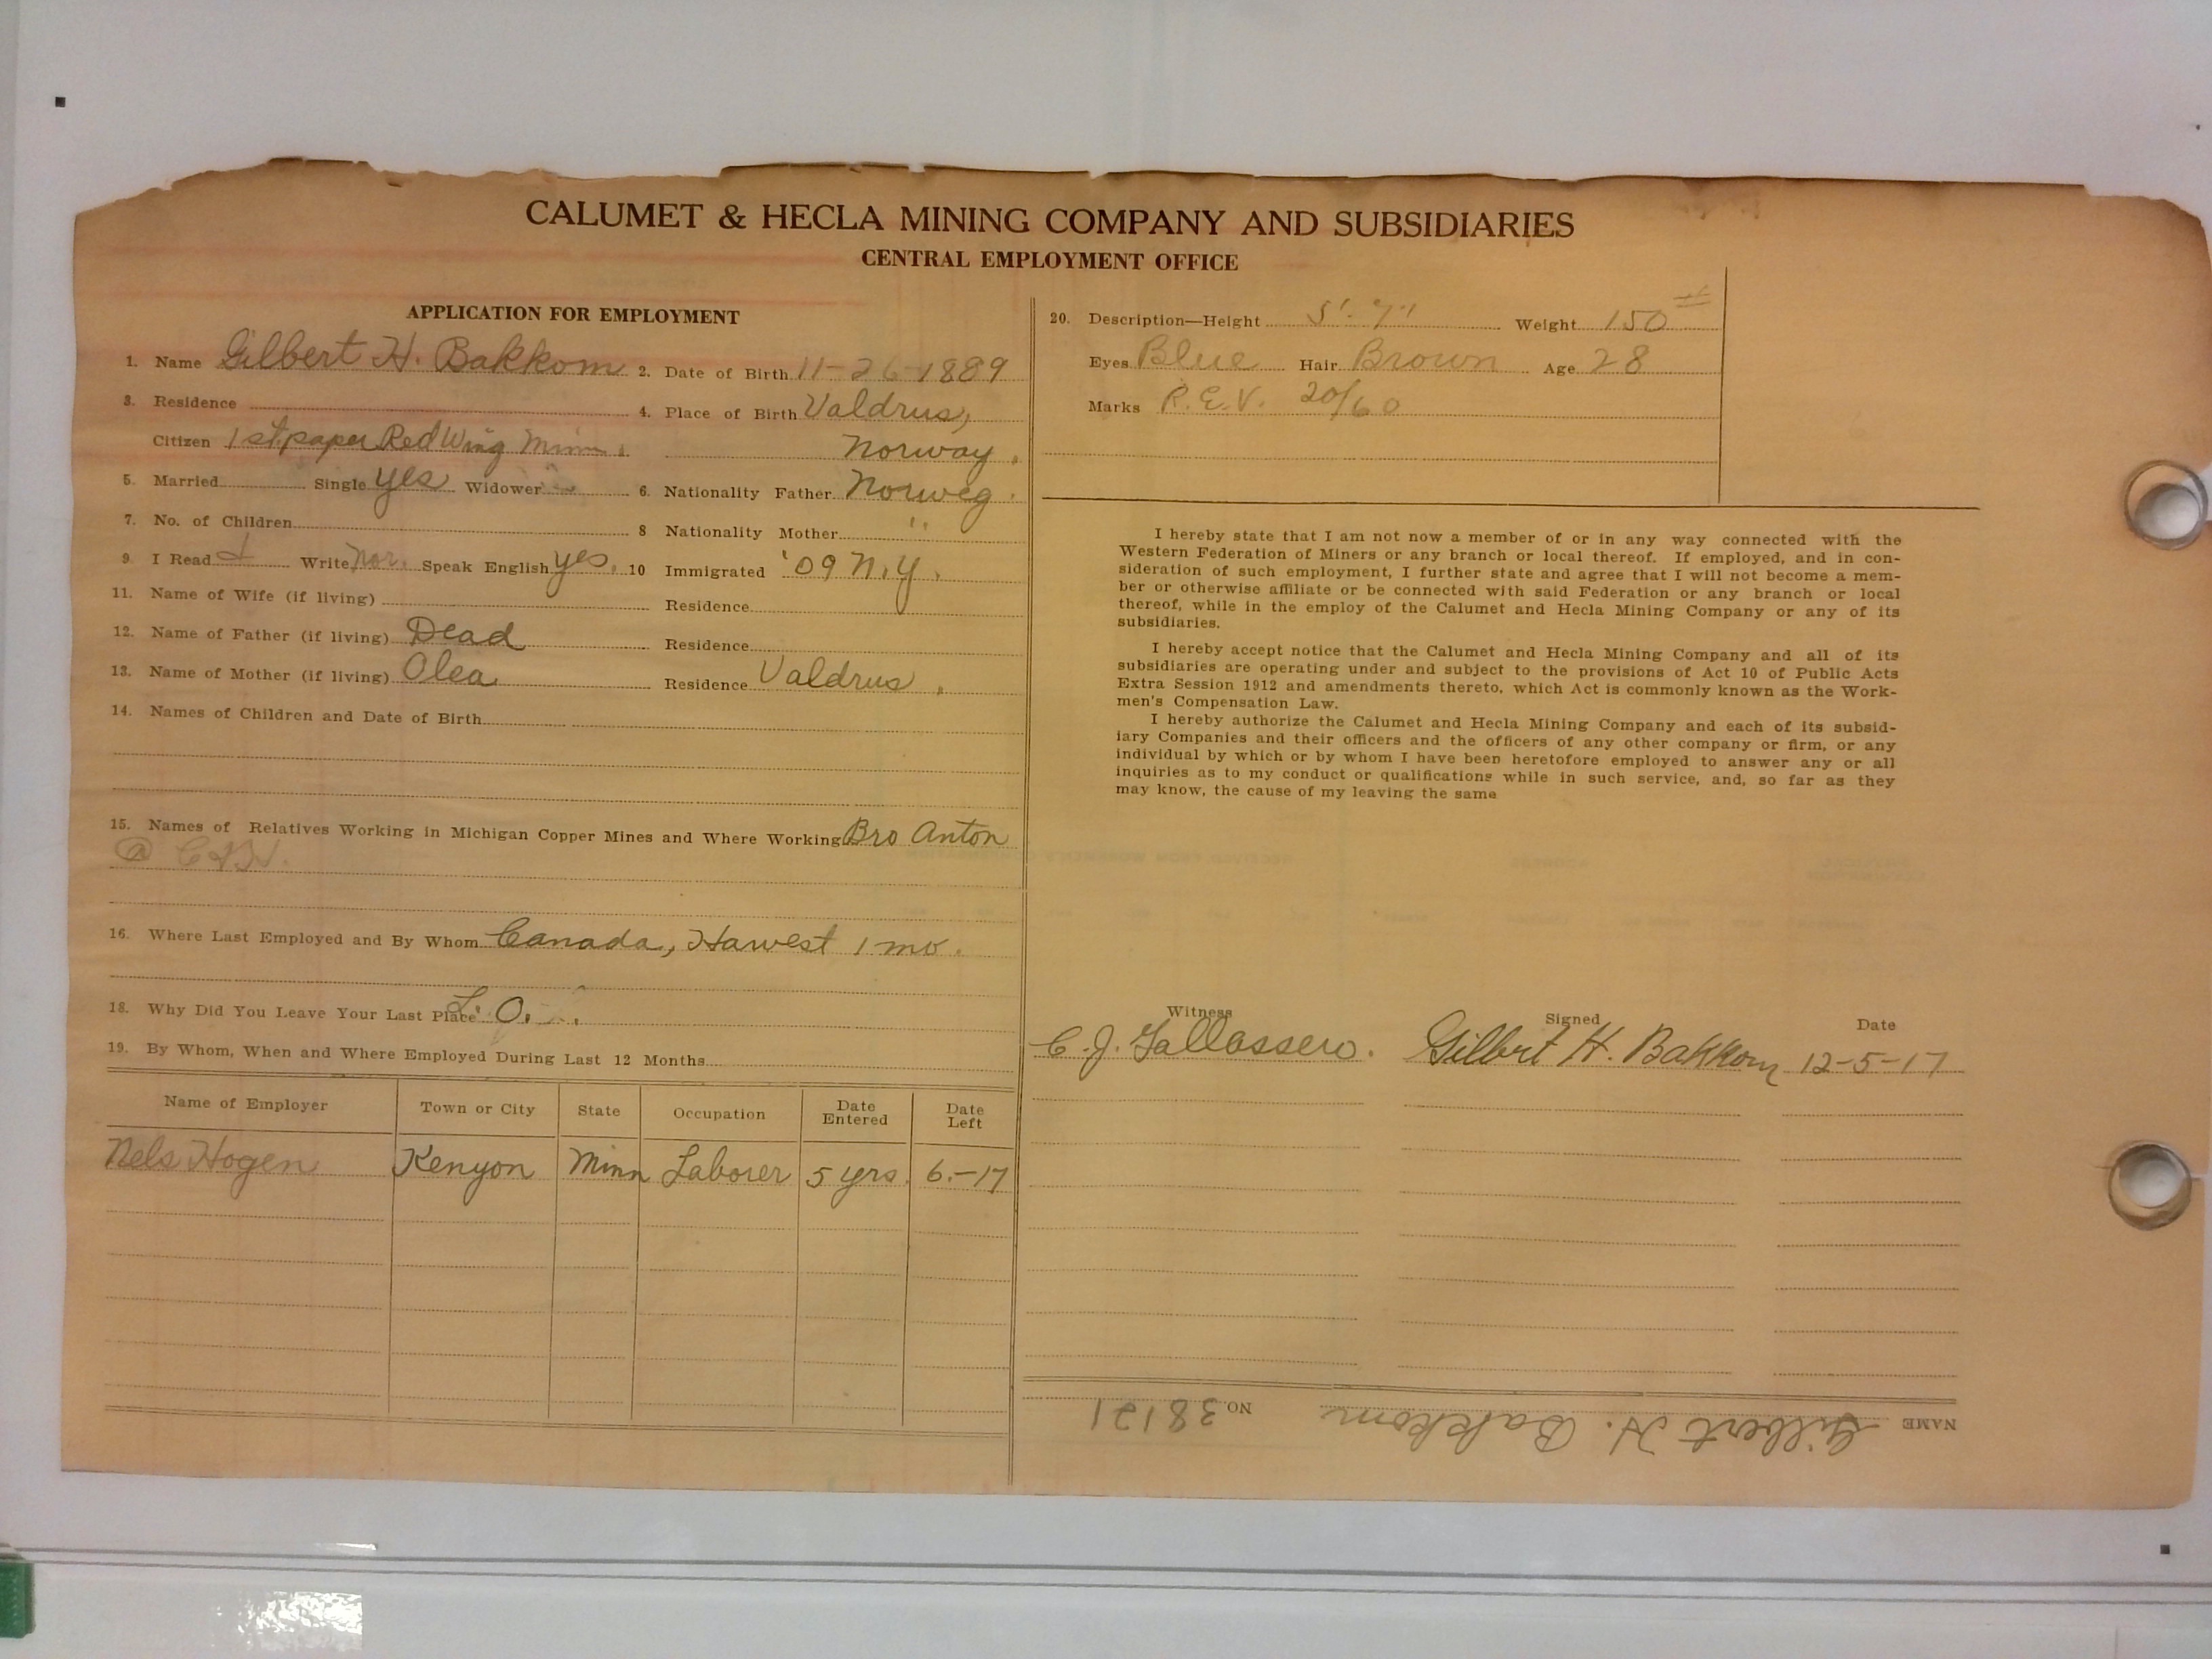 CALUMET & HECLA MINING COMPANY AND SUBSIDIARIES
CENTRAL EMPLOYMENT OFFICE
APPLICATION FOR EMPLOYMENT
1. Name Gilbert H. Bakkom 2. Date of Birth 11-26-1889
3. Residence 4. Place of Birth Valdrus,
Citizen 1st paper Red Wing Minn. Norway.
5. Married Single yes Widower 6. Nationality Father Norweg.
7. No. of Children 8 Nationality Mother "
9. I Read & Write Nor. Speak English yes. 10 Immigrated '09 N.Y.
11. Name of Wife (if living) Residence
12. Name of Father (if living) Dead Residence
13. Name of Mother (if living) Olea Residence Valdrus,
14. Names of Children and Date of Birth
15. Names of Relatives Working in Michigan Copper Mines and Where Working Bro Anton
@ C&H.
16. Where Last Employed and By Whom Canada, Harvest 1 mo.
18. Why Did You Leave Your Last Place L.O.
19. By Whom, When and Where Employed During Last 12 Months
Name of Employer Town or City State Occupation Date Entered Date Left
Nels Hogen Kenyon Minn Laborer 5 yrs. 6-17
20. Description—Height 5'-7" Weight 150 #
Eyes Blue Hair Brown Age 28
Marks R.E.V. 20/60
I hereby state that I am not now a member of or in any way connected with the
Western Federation of Miners or any branch or local thereof. If employed, and in con-
sideration of such employment, I further state and agree that I will not become a mem-
ber or otherwise affiliate or be connected with said Federation or any branch or local
thereof, while in the employ of the Calumet and Hecla Mining Company or any of its
subsidiaries.
I hereby accept notice that the Calumet and Hecla Mining Company and all of its
subsidiaries are operating under and subject to the provisions of Act 10 of Public Acts
Extra Session 1912 and amendments thereto, which Act is commonly known as the Work-
men's Compensation Law.
I hereby authorize the Calumet and Hecla Mining Company and each of its subsid-
iary Companies and their officers and the officers of any other company or firm, or any
individual by which or by whom I have been heretofore employed to answer any or all
inquiries as to my conduct or qualifications while in such service, and, so far as they
may know, the cause of my leaving the same
Witness Signed Date
C. J. Gilbert H. Bakkom 12-5-17
NAME Gilbert H. Bakkom NO. 38121